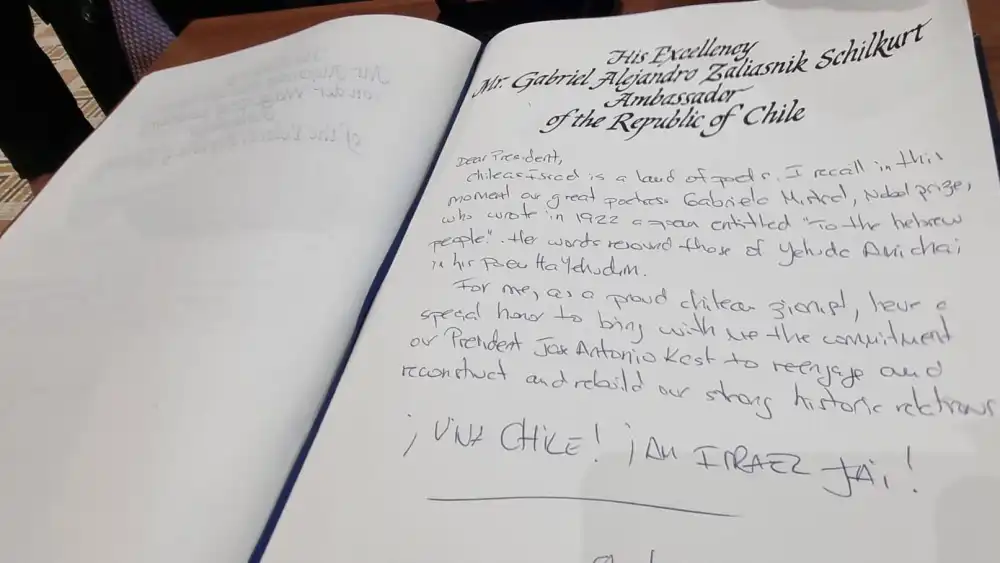 His Excellency
Mr. Gabriel Alejandro Zaliasnik Schilkurt
Ambassador
of the Republic of Chile
Dear President,
Chile as Israel is a land of poets. I recall in this
moment our great poetess Gabriela Mistral, Nobel prize,
who wrote in 1922 a poem entitled "To the hebrew
people". Her words resound those of Yehuda Amichai
in his poem HaYehudim.
For me, as a proud chilean zionist, have a
special honor to bring with me the commitment
our President Jose Antonio Kast to reengage and
reconstruct and rebuild our strong historic relations
¡VIVA CHILE! ¡AM ISRAEL JAI!